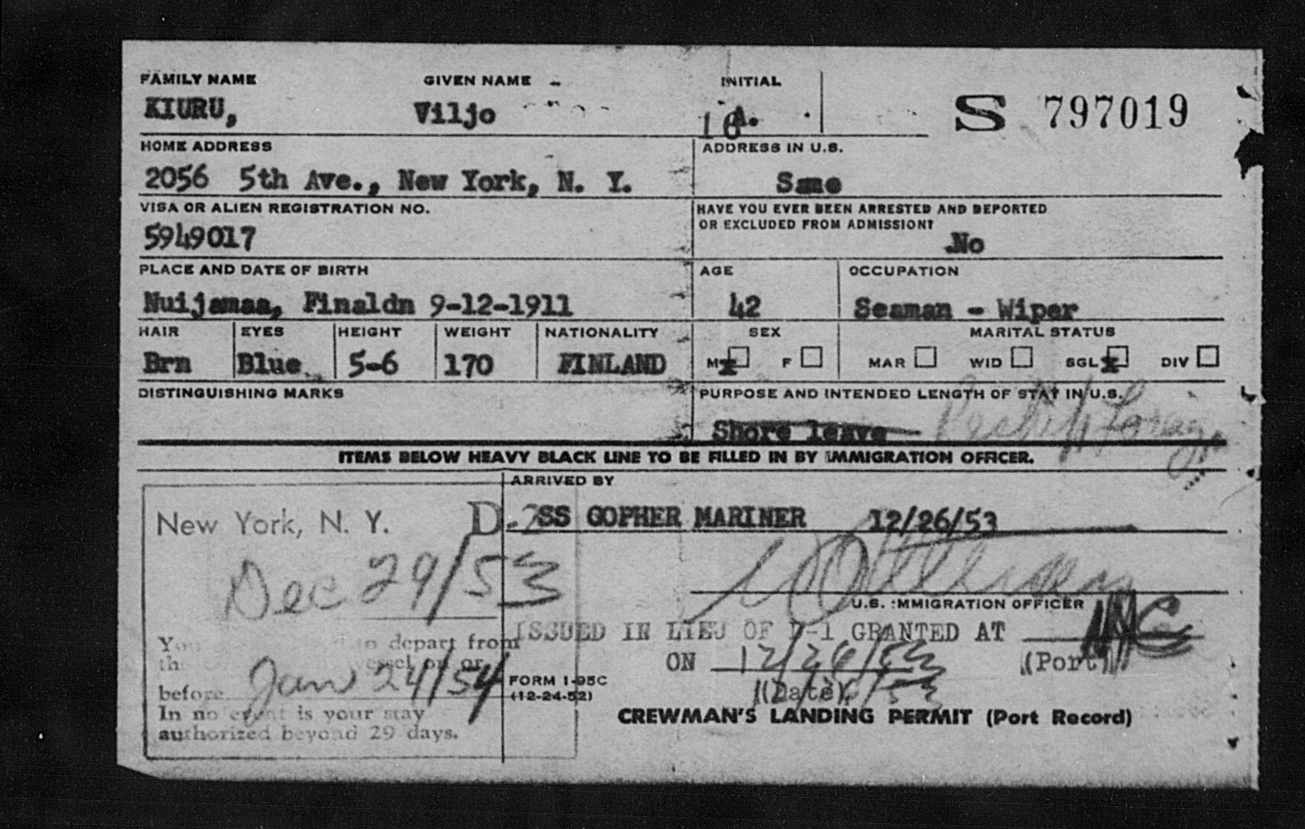 FAMILY NAME GIVEN NAME INITIAL
KIURU, Viljo A. S 797019
HOME ADDRESS ADDRESS IN U.S.
2056 5th Ave., New York, N. Y. Same
VISA OR ALIEN REGISTRATION NO. HAVE YOU EVER BEEN ARRESTED AND DEPORTED
OR EXCLUDED FROM ADMISSION?
5949017 No
PLACE AND DATE OF BIRTH AGE OCCUPATION
Nuijamaa, Finaldn 9-12-1911 42 Seaman - Wiper
HAIR EYES HEIGHT WEIGHT NATIONALITY SEX MARITAL STATUS
Brn Blue 5-6 170 FINLAND M x F MAR WID SGL x DIV
DISTINGUISHING MARKS PURPOSE AND INTENDED LENGTH OF STAY IN U.S.
Shore leave
ITEMS BELOW HEAVY BLACK LINE TO BE FILLED IN BY IMMIGRATION OFFICER.
ARRIVED BY
New York, N. Y. D-2 SS GOPHER MARINER 12/26/53
Dec 29/53
U.S. IMMIGRATION OFFICER
ISSUED IN LIEU OF D-1 GRANTED AT
You to depart from
vessel on or ON 12/26/53 (Port)
before Jan 24/54 FORM I-95C (Date)
(12-24-52)
In no event is your stay CREWMAN'S LANDING PERMIT (Port Record)
authorized beyond 29 days.